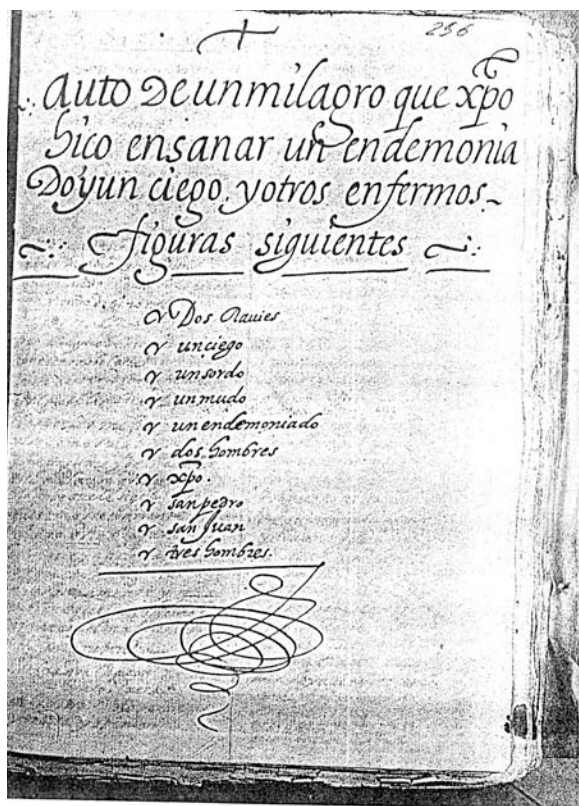 256
auto De un milagro que xp̄o
hico en sanar un endemonia
Do y un ciego, y otros enfermos~
figuras siguientes
Dos Ravies
un ciego
un sordo
un mudo
un endemoniado
dos hombres
xp̄o.
san pedro
san Juan
tres hombres.